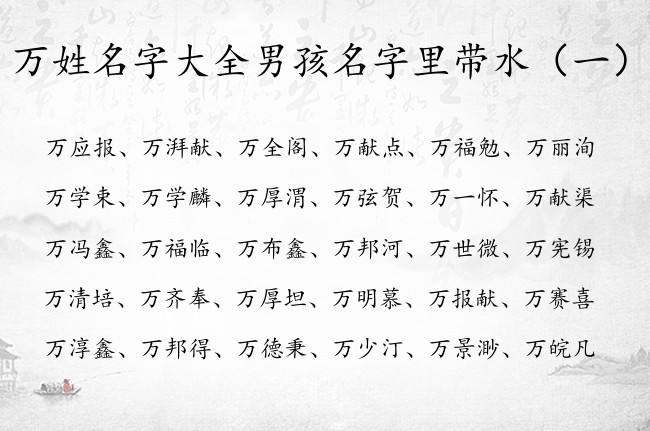 万姓名字大全男孩名字里带水（一）
万应报、万湃献、万全阁、万献点、万福勉、万丽洵
万学束、万学麟、万厚渭、万弦贺、万一怀、万献渠
万冯鑫、万福临、万布鑫、万邦河、万世微、万宪锡
万清培、万齐奉、万厚坦、万明慕、万报献、万赛喜
万淳鑫、万邦得、万德秉、万少汀、万景渺、万皖凡